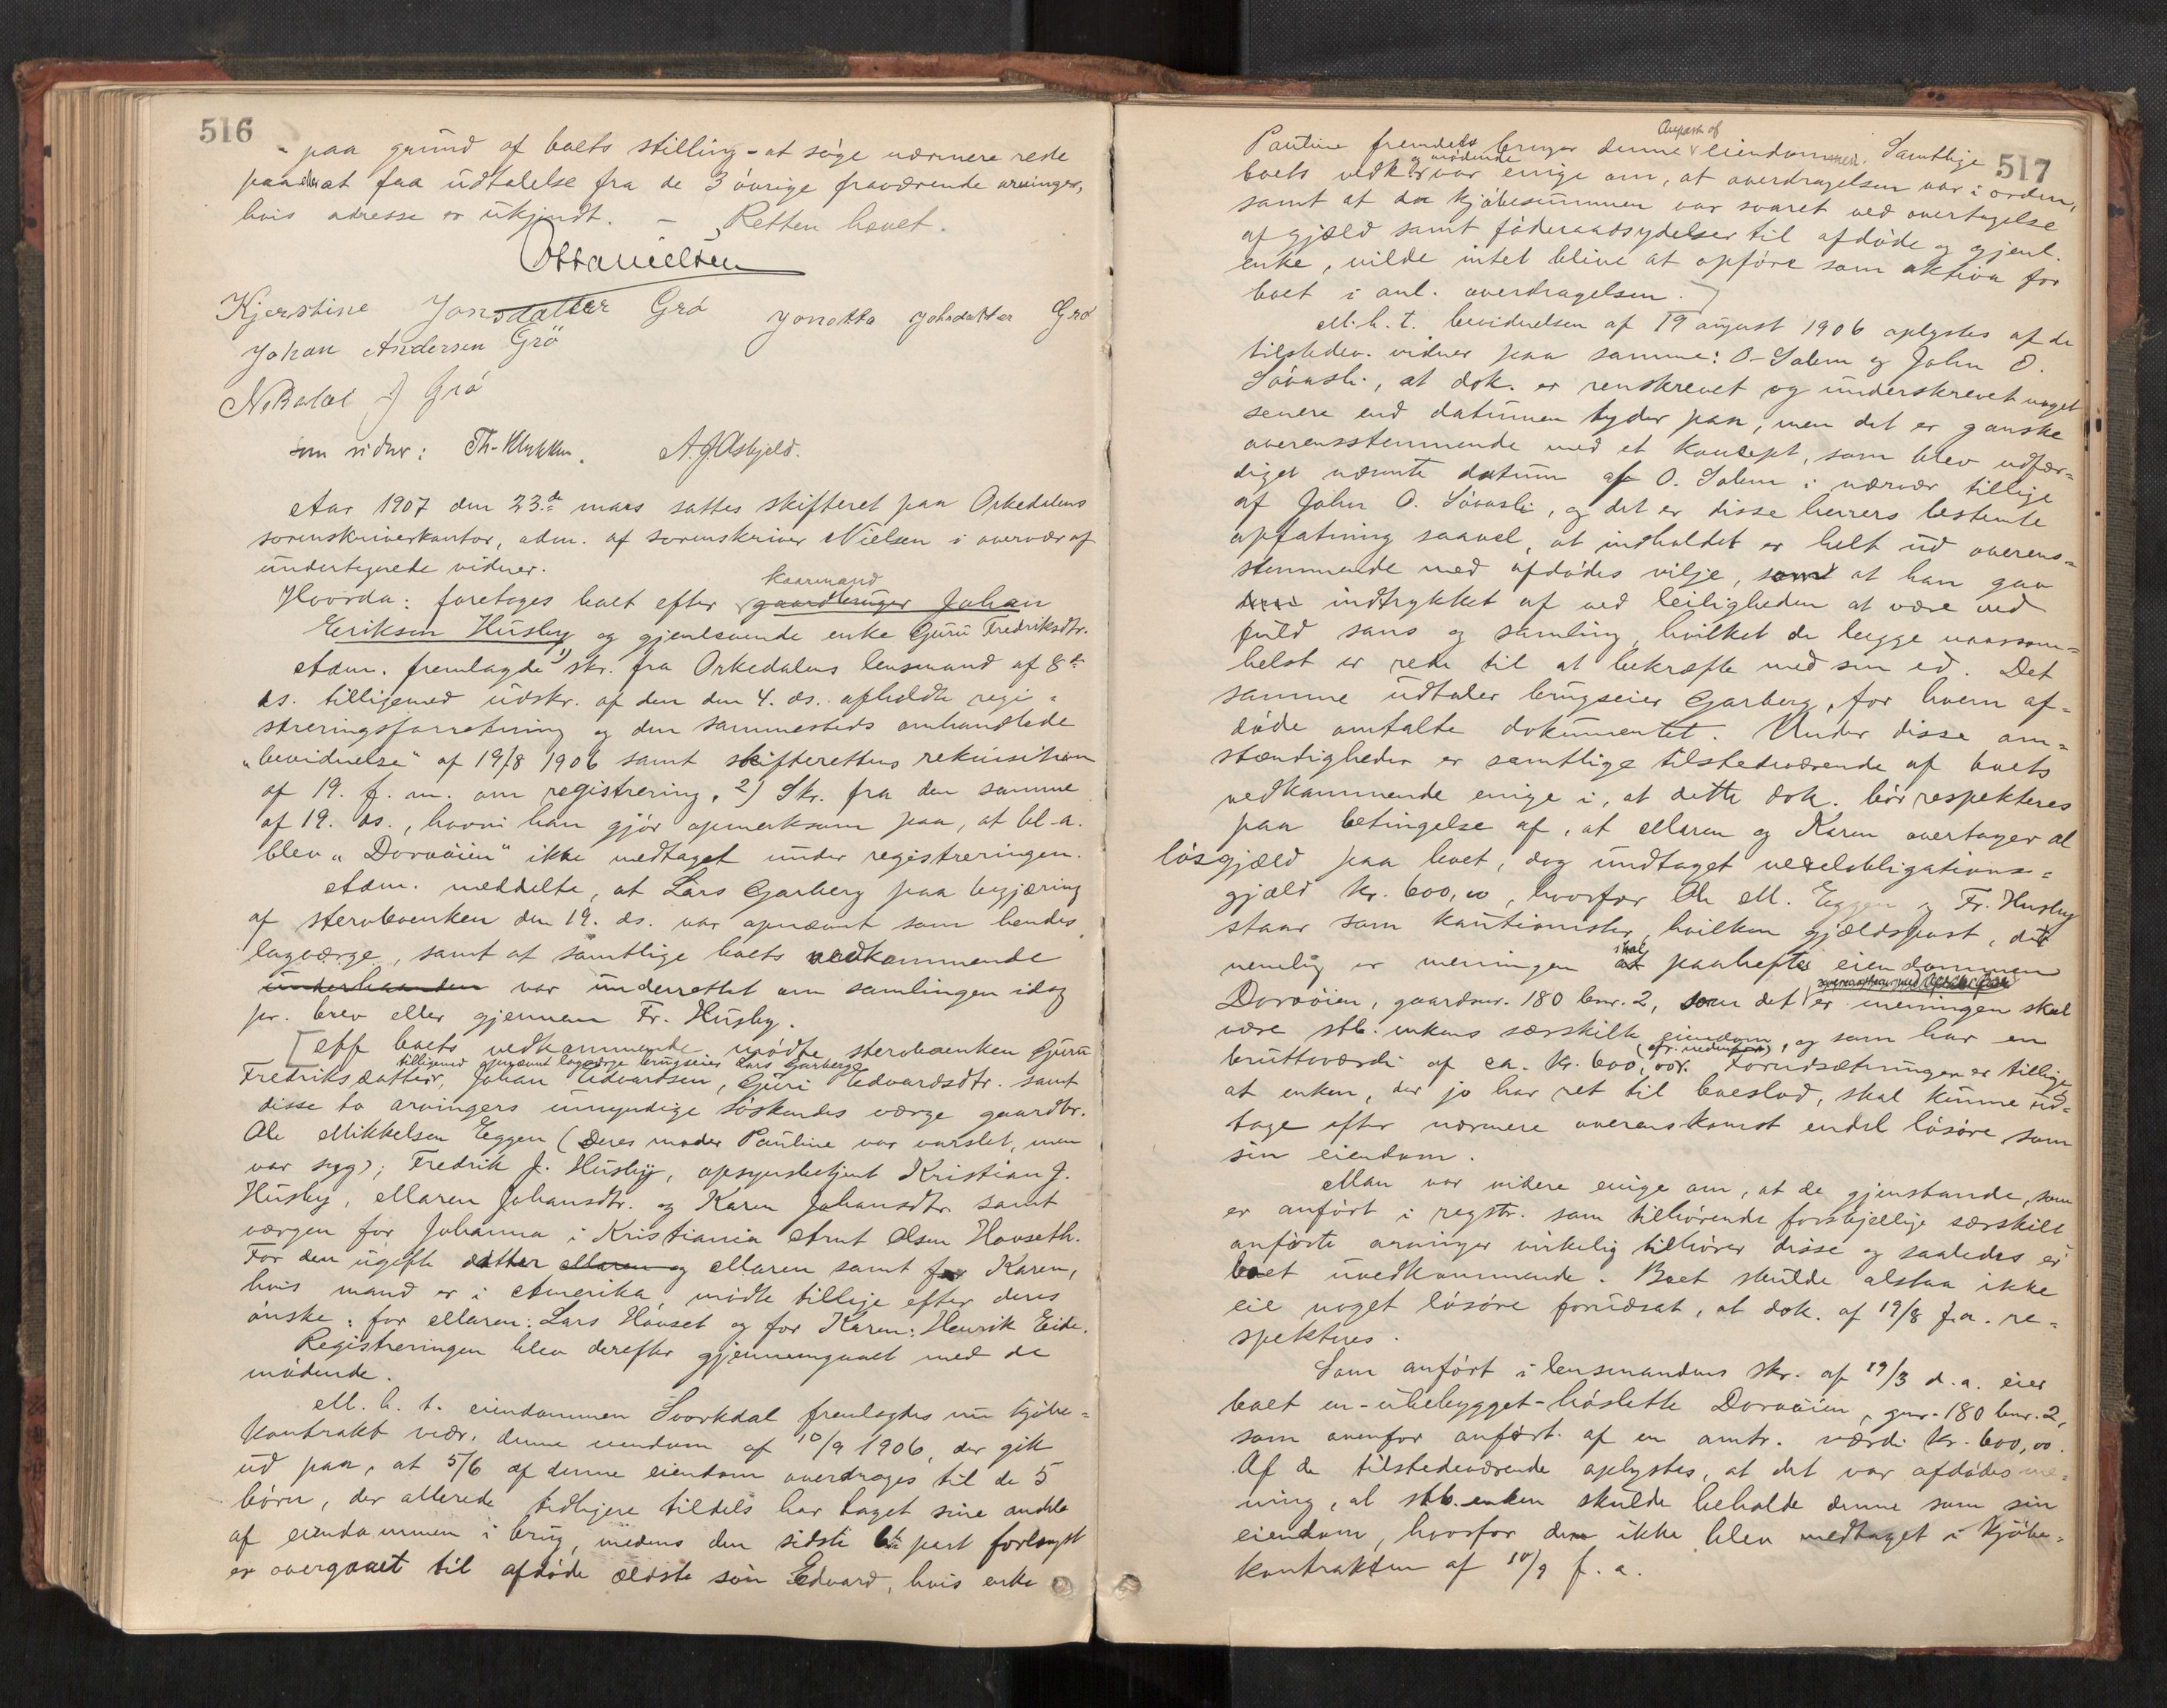 516
- paa grund af boets stilling - at søge nærmere rede
paa eller at faa udtalelse fra de 3 øvrige fraværende arvinger,
hvis adresse er ukjendt. — Retten hævet.
Otto Nielsen
Kjerstine Jonsdatter Grø Jonetta Johsdatter Grø
Johan Andersen Grø
Grø
som vidner: A. J. Asbjeld.
Aar 1907 den 23de mars sattes skifteret paa Orkedalens
sorenskriverkontor, adm. af sorenskriver Nielsen i overvær af
undertegnede vidner.
kaarmand
Hvorda: foretoges boet efter gaardbruger Johan
Eriksen Husby og gjenlevende enke Guru Fredriksdtr.
Adm. fremlagde 1) skr. fra Orkedalens lensmand af 8de
ds. tilligemed udskr. af den den 4. ds. afholdte regi-
streringsforretning og den sammesteds omhandlede
"bevidnelse" af 19/8 1906 samt skifterettens rekvisition
af 19. f. m. om registrering. 2) Skr. fra den samme
af 19. ds., hvori han gjør opmerksom paa, at bl. a.
blev "Dorøien" ikke medtaget under registreringen.
Adm. meddelte, at Lars Garberg paa begjæring
af stervboenken den 19. ds. var opnævnt som hendes
lagværge, samt at samtlige boets vedkommende
underhaanden var underrettet om samlingen idag
pr. brev eller gjennem Fr. Husby.
[Aff boets vedkommende mødte stervboenken Guru
tilligemed opnævnt lagværge brugseier Lars Garberg
Fredriksdatter, Johan Edvardsen, Guri Edvardsdtr. samt
disse to arvingers umyndige søskendes værge gaardbr.
Ole Mikkelsen Eggen (Deres moder Pauline var varslet, men
var syg); Fredrik J. Husby, opsynsbetjent Kristian J.
Husby, Maren Johansdtr. og Karen Johansdtr. samt
værgen for Johanna i Kristiania Arnt Olsen Hovseth.
For den ugifte datter Maren og Maren samt for Karen,
hvis mand er i Amerika, mødte tillige efter deres
ønske: for Maren: Lars Hovset og for Karen: Henrik Eide.
Registreringen blev derefter gjennemgaaet med de
mødende.
M. h. t. eiendommen Svorkdal fremlagdes nu kjøbe-
kontrakt vedr. denne eiendom af 10/9 1906, der gik
ud paa, at 5/6 af denne eiendom overdroges til de 5
børn, der allerede tidligere tildels har taget sine andele
af eiendommen i brug, medens den sidste 6te part forlængst
er overgaaet til afdøde ældste søn Edvard, hvis enke
517
Anpart af
Pauline fremdeles bruger denne eiendommen. Samtlige
og mødende
boets vedk. var enige om, at overdragelsen var i orden,
samt at da kjøbesummen var svaret ved overtagelse
af gjæld samt føderaadsydelser til afdøde og gjenl.
enke, vilde intet blive at opføre som aktiva for
boet i anl. overdragelsen.]
M. h. t. bevidnelsen af 19 august 1906 oplystes af de
tilstedev. vidner paa samme: O. Solem og John O.
Søvasli, at dok. er renskrevet og underskrevet noget
senere end datumen tyder paa, men det er ganske
overensstemmende med et koncept, som blev udfær-
diget nævnte datum af O. Solem i nærvær tillige
af John O. Søvasli, og det er disse herrers bestemte
opfatning saavel, at indholdet er helt ud overens-
stemmende med afdødes vilje, som at han gav
indtrykket af ved leiligheden at være ved
fuld sans og samling, hvilket de begge naarsom-
helst er rede til at bekræfte med sin ed. Det
samme udtaler brugseier Garberg, for hvem af-
døde omtalte dokumentet. Under disse om-
stændigheder er samtlige tilstedeværende af boets
vedkommende enige i, at dette dok. bør respekteres
paa betingelse af, at Maren og Karen overtager al
løsgjæld paa boet, dog undtaget vexelobligations-
gjæld kr. 600,00, hvorfor Ole M. Eggen og Fr. Husby
staar som kautionister, hvilken gjældspost, det
skal
nemlig er meningen at paaheftes eiendommen
Dorøien, gaardnr. 180 bnr. 2, som det er meningen skal
være stb. enkens særskilte eiendom, og som har en
bruttoværdi af ca. kr. 600,00. Forudsætningen er tillige,
at enken, der jo har ret til boeslod, skal kunne ud-
tage efter nærmere overenskomst endel løsøre som
sin eiendom.
Man var videre enige om, at de gjenstande, som
er anført i registr. som tilhørende forskjellige særskilt
anførte arvinger virkelig tilhører disse og saaledes er
boet uvedkommende. Boet skulde altsaa ikke
eie noget løsøre forudsat, at dok. af 19/8 f.a. re-
spekteres.
Som anført i lensmandens skr. af 19/3 d. a. eier
boet en - ubebygget - høslette Dorøien, gnr. 180 bnr. 2,
som ovenfor anført af en omtr. værdi kr. 600,00.
Af de tilstedeværende oplystes, at det var afdødes me-
ning, at stb. enken skulde beholde denne som sin
eiendom, hvorfor den ikke blev medtaget i kjøbe-
kontrakten af 10/9 f. a.